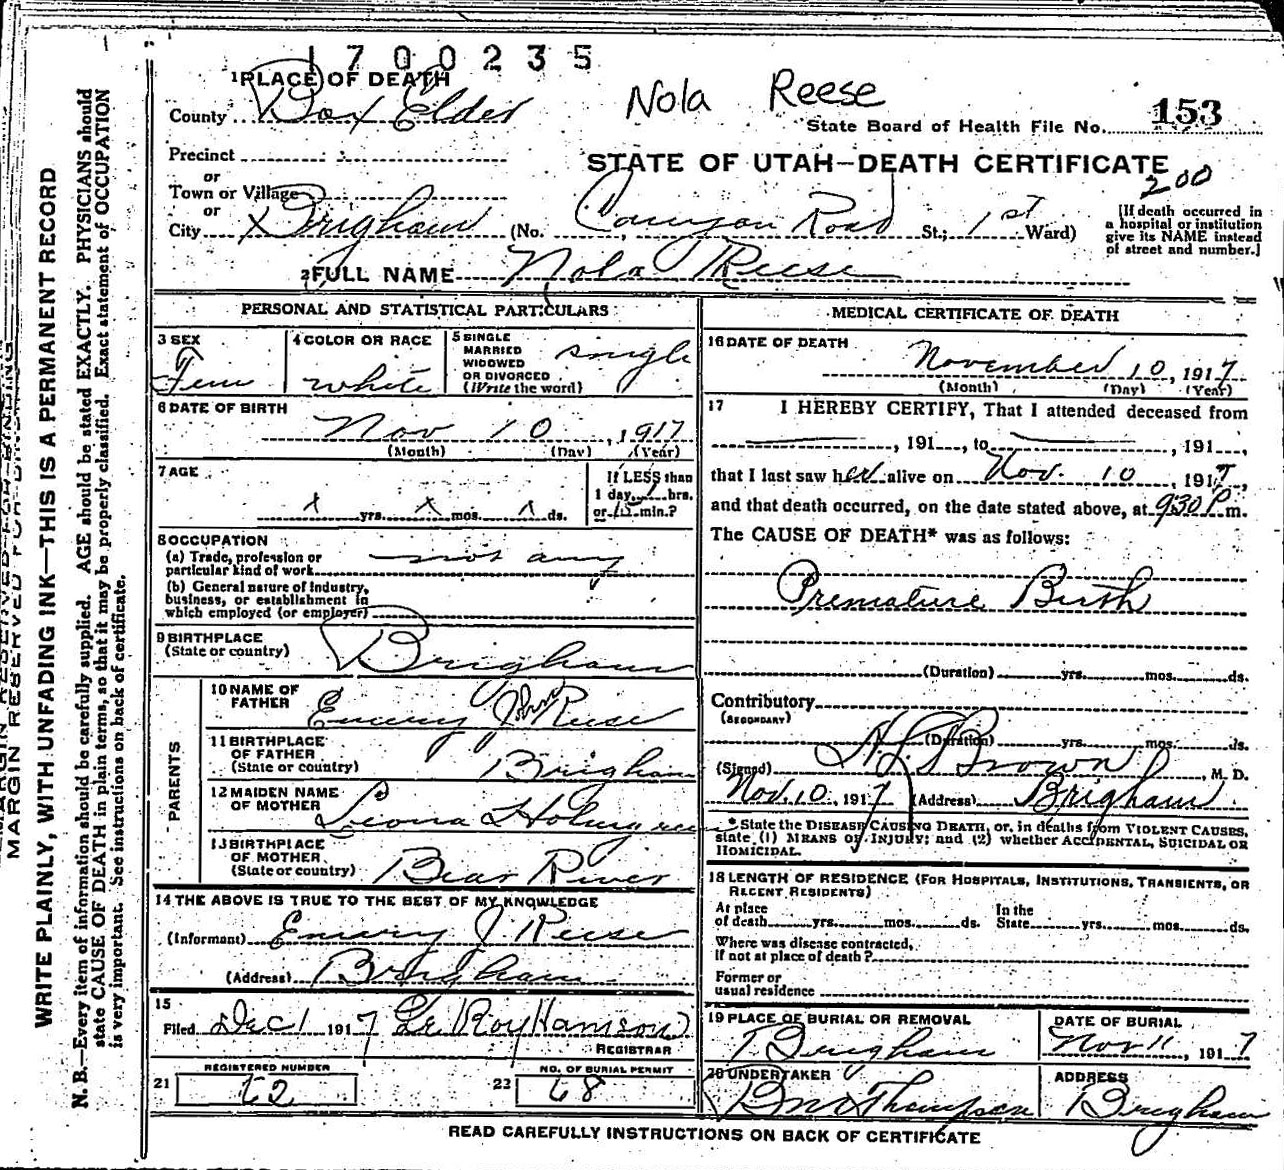 1700235
1 PLACE OF DEATH
Nola Reese
County Box Elder
State Board of Health File No. 153
Precinct
or
Town or Village
or
City X Brigham
STATE OF UTAH—DEATH CERTIFICATE
200
(No. Canyon Road St.; 1st Ward)
[If death occurred in
a hospital or institution
give its NAME instead
of street and number.]
2 FULL NAME Nola Reese
PERSONAL AND STATISTICAL PARTICULARS
3 SEX
Fem
4 COLOR OR RACE
white
5 SINGLE
MARRIED
WIDOWED
OR DIVORCED
(Write the word)
single
6 DATE OF BIRTH
Nov 10, 1917
(Month) (Day) (Year)
7 AGE
x yrs. x mos. x ds.
If LESS than
1 day, hrs.
or 15 min.?
8 OCCUPATION
(a) Trade, profession or
particular kind of work not any
(b) General nature of industry,
business, or establishment in
which employed (or employer)
9 BIRTHPLACE
(State or country) Brigham
PARENTS
10 NAME OF
FATHER Emery John Reese
11 BIRTHPLACE
OF FATHER
(State or country) Brigham
12 MAIDEN NAME
OF MOTHER Leona Holmgren
13 BIRTHPLACE
OF MOTHER
(State or country) Bear River
14 THE ABOVE IS TRUE TO THE BEST OF MY KNOWLEDGE
(Informant) Emery J. Reese
(Address) Brigham
15
Filed Dec 1 1917 Le Roy Hamson
REGISTRAR
21 REGISTERED NUMBER
62
22 NO. OF BURIAL PERMIT
68
MEDICAL CERTIFICATE OF DEATH
16 DATE OF DEATH
November 10, 1917
(Month) (Day) (Year)
17 I HEREBY CERTIFY, That I attended deceased from
, 191 , to , 191 ,
that I last saw her alive on Nov. 10, 1917,
and that death occurred, on the date stated above, at 930 P m.
The CAUSE OF DEATH* was as follows:
Premature Birth
(Duration) yrs. mos. ds.
Contributory
(SECONDARY)
(Duration) yrs. mos. ds.
(Signed) Brown, M. D.
Nov. 10, 1917 (Address) Brigham
* State the DISEASE CAUSING DEATH, or, in deaths from VIOLENT CAUSES,
state (1) MEANS OF INJURY; and (2) whether ACCIDENTAL, SUICIDAL OR
HOMICIDAL.
18 LENGTH OF RESIDENCE (FOR HOSPITALS, INSTITUTIONS, TRANSIENTS, OR
RECENT RESIDENTS)
At place
of death yrs. mos. ds.
In the
State yrs. mos. ds.
Where was disease contracted,
if not at place of death?
Former or
usual residence
19 PLACE OF BURIAL OR REMOVAL
Brigham
DATE OF BURIAL
Nov 11, 1917
20 UNDERTAKER
Thompson
ADDRESS
Brigham
READ CAREFULLY INSTRUCTIONS ON BACK OF CERTIFICATE
MARGIN RESERVED FOR BINDING
WRITE PLAINLY, WITH UNFADING INK—THIS IS A PERMANENT RECORD
N. B.—Every item of information should be carefully supplied. AGE should be stated EXACTLY. PHYSICIANS should
state CAUSE OF DEATH in plain terms, so that it may be properly classified. Exact statement of OCCUPATION
is very important. See instructions on back of certificate.